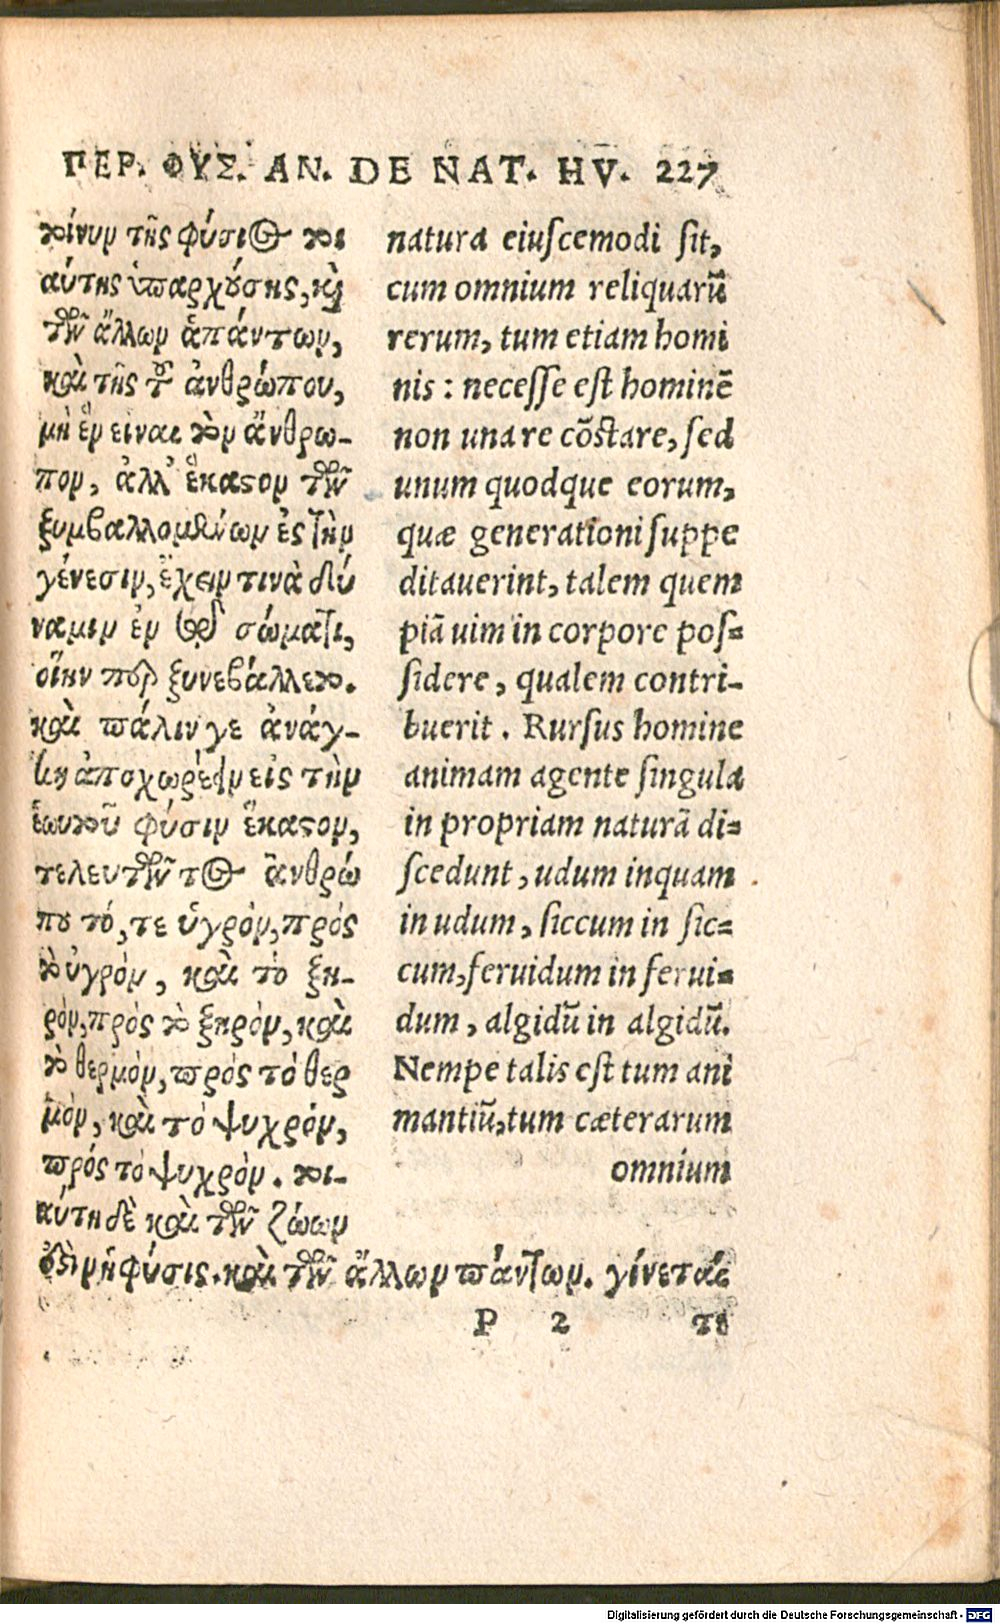 ΠΕΡ. ΦΥΣ. ΑΝ. DE NAT. HV. 227
τοίνυν τῆς φύσιος τοι
αύτης ὑπαρχούσης, καὶ
τῶν ἄλλων ἁπάντων,
καὶ τῆς τοῦ ἀνθρώπου,
μὴ ἓν εἶναι τὸν ἄνθρω-
πον, ἀλλ' ἕκαστον τῶν
ξυμβαλλομένων ἐς τὴν
γένεσιν, ἔχειν τινὰ δύ
ναμιν ἐν τῷ σώματι,
οἵην περ ξυνεβάλλετο.
καὶ πάλιν γε ἀνάγ-
κη ἀποχωρέειν εἰς τὴν
ἑωυτοῦ φύσιν ἕκαστον,
τελευτῶντος ἀνθρώ
που τό, τε ὑγρὸν, πρὸς
τὸ ὑγρὸν, καὶ τὸ ξη-
ρὸν, πρὸς τὸ ξηρὸν, καὶ
τὸ θερμὸν, πρὸς τὸ θερ
μὸν, καὶ τὸ ψυχρὸν,
πρὸς τὸ ψυχρὸν. τοι-
αύτη δὲ καὶ τῶν ζώων
ἐστὶν ἡ φύσις. καὶ τῶν ἄλλων πάντων. γίνεται
natura eiuscemodi sit,
cum omnium reliquarū
rerum, tum etiam homi
nis: necesse est hominē
non una re cōstare, sed
unum quodque eorum,
quæ generationi suppe
ditauerint, talem quem
piā uim in corpore pos-
sidere, qualem contri-
buerit. Rursus homine
animam agente singula
in propriam naturā di-
scedunt, udum inquam
in udum, siccum in sic-
cum, feruidum in ferui-
dum, algidū in algidū.
Nempe talis est tum ani
mantiū, tum cæterarum
omnium
P 2
Digitalisierung gefördert durch die Deutsche Forschungsgemeinschaft - DFG